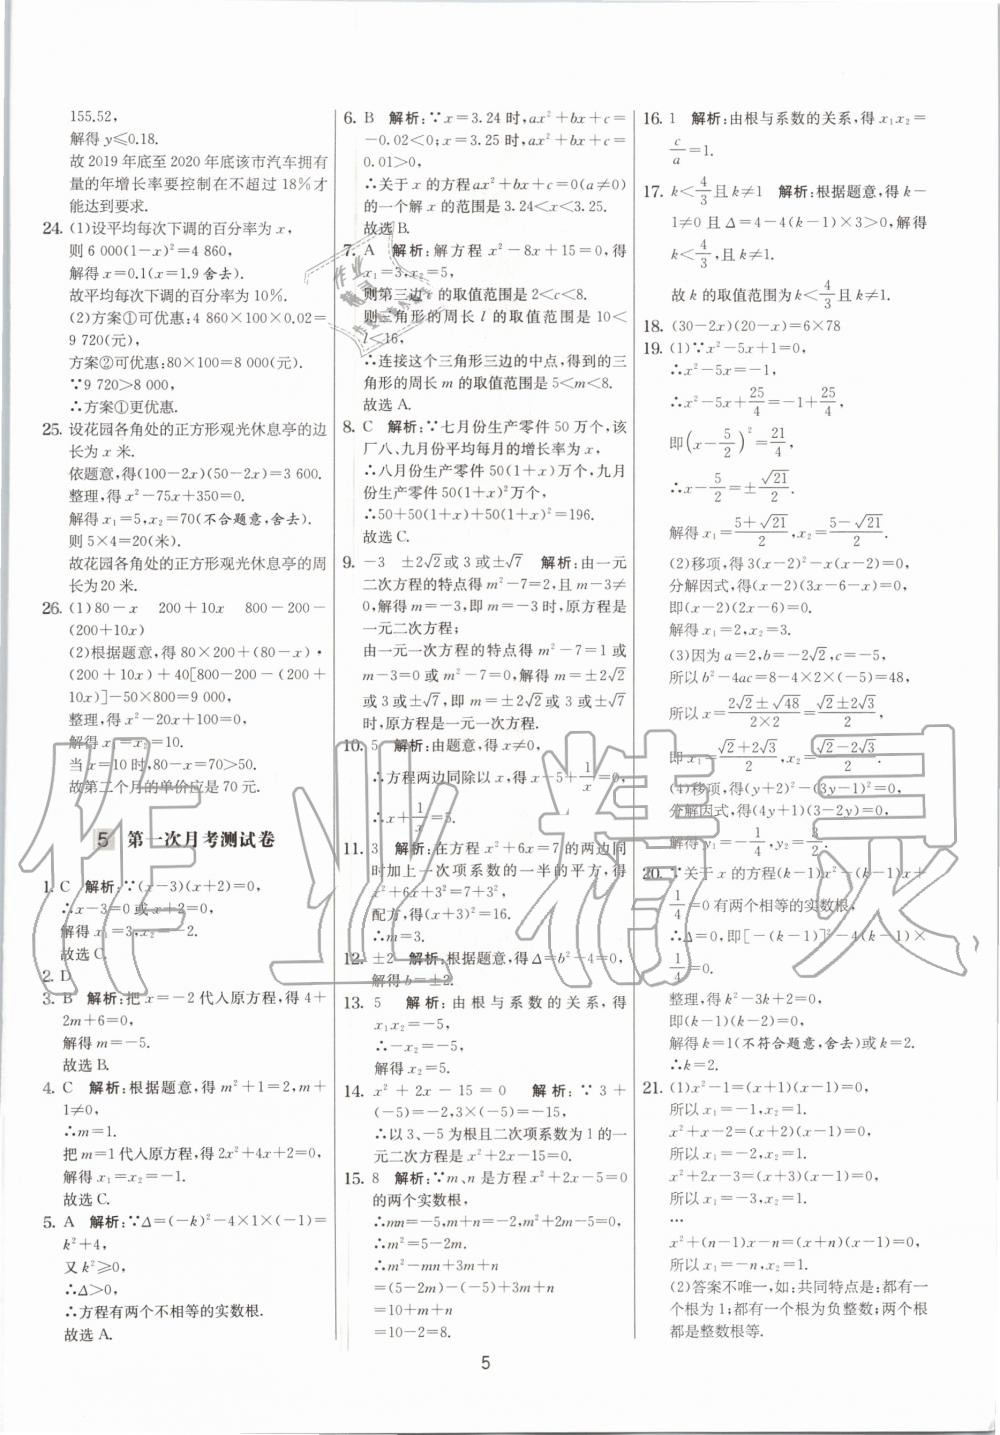 155.52,
解得 y≤0.18.
故 2019 年底至 2020 年底该市汽车拥有
量的年增长率要控制在不超过 18%才
能达到要求.
24. (1)设平均每次下调的百分率为 x,
则 6 000(1−x)²=4 860,
解得 x=0.1(x=1.9 舍去).
故平均每次下调的百分率为 10%.
(2)方案①可优惠:4 860×100×0.02=
9 720(元),
方案②可优惠:80×100=8 000(元),
∵9 720>8 000,
∴方案①更优惠.
25. 设花园各角处的正方形观光休息亭的边
长为 x 米.
依题意,得(100−2x)(50−2x)=3 600.
整理,得 x²−75x+350=0.
解得 x₁=5,x₂=70(不合题意,舍去).
则 5×4=20(米).
故花园各角处的正方形观光休息亭的周
长为 20 米.
26. (1)80−x 200+10x 800−200−
(200+10x)
(2)根据题意,得 80×200+(80−x)·
(200+10x)+40[800−200−(200+
10x)]−50×800=9 000,
整理,得 x²−20x+100=0,
解得 x₁=x₂=10.
当 x=10 时,80−x=70>50.
故第二个月的单价应是 70 元.
5 第一次月考测试卷
1. C 解析:∵(x−3)(x+2)=0,
∴x−3=0 或 x+2=0,
解得 x₁=3,x₂=−2.
故选 C.
2. D
3. B 解析:把 x=−2 代入原方程,得 4+
2m+6=0,
解得 m=−5.
故选 B.
4. C 解析:根据题意,得 m²+1=2,m+
1≠0,
∴m=1.
把 m=1 代入原方程,得 2x²+4x+2=0,
解得 x₁=x₂=−1.
故选 C.
5. A 解析:∵Δ=(−k)²−4×1×(−1)=
k²+4,
又 k²≥0,
∴Δ>0,
∴方程有两个不相等的实数根.
故选 A.
6. B 解析:∵x=3.24 时,ax²+bx+c=
−0.02<0;x=3.25 时,ax²+bx+c=
0.01>0,
∴关于 x 的方程 ax²+bx+c=0(a≠0)
的一个解 x 的范围是 3.24<x<3.25.
故选 B.
7. A 解析:解方程 x²−8x+15=0,得
x₁=3,x₂=5,
则第三边 c 的取值范围是 2<c<8.
则三角形的周长 l 的取值范围是 10<
l<16,
∴连接这个三角形三边的中点,得到的三
角形的周长 m 的取值范围是 5<m<8.
故选 A.
8. C 解析:∵七月份生产零件 50 万个,该
厂八、九月份平均每月的增长率为 x,
∴八月份生产零件 50(1+x)万个,九月
份生产零件 50(1+x)²万个,
∴50+50(1+x)+50(1+x)²=196.
故选 C.
9. −3 ±2√2或 3 或±√7 解析:由一元
二次方程的特点得 m²−7=2,且 m−3≠
0,解得 m=−3,即 m=−3 时,原方程是
一元二次方程;
由一元一次方程的特点得 m²−7=1 或
m−3=0 或 m²−7=0,解得 m=±2√2
或 3 或±√7,即 m=±2√2或 3 或±√7
时,原方程是一元一次方程.
10. 5 解析:由题意,得 x≠0,
∴方程两边同除以 x,得 x−5+1/x=0,
∴x+1/x=5.
11. 3 解析:在方程 x²+6x=7 的两边同
时加上一次项系数的一半的平方,得
x²+6x+3²=7+3²,
配方,得(x+3)²=16.
∴m=3.
12. ±2 解析:根据题意,得 Δ=b²−4=0,
解得 b=±2.
13. 5 解析:由根与系数的关系,得
x₁x₂=−5,
∴−x₂=−5,
解得 x₂=5.
14. x²+2x−15=0 解析:∵3+
(−5)=−2,3×(−5)=−15,
∴以 3、−5 为根且二次项系数为 1 的一
元二次方程是 x²+2x−15=0.
15. 8 解析:∵m、n 是方程 x²+2x−5=0
的两个实数根,
∴mn=−5,m+n=−2,m²+2m−5=0,
∴m²=5−2m.
∴m²−mn+3m+n
=(5−2m)−(−5)+3m+n
=10+m+n
=10−2=8.
16. 1 解析:由根与系数的关系,得 x₁x₂=
c/a=1.
17. k<4/3且 k≠1 解析:根据题意,得 k−
1≠0 且 Δ=4−4(k−1)×3>0,解得
k<4/3,且 k≠1.
故 k 的取值范围是 k<4/3且 k≠1.
18. (30−2x)(20−x)=6×78
19. (1)∵x²−5x+1=0,
∴x²−5x=−1,
∴x²−5x+25/4=−1+25/4,
即(x−5/2)²=21/4,
∴x−5/2=±√21/2.
解得 x₁=(5+√21)/2,x₂=(5−√21)/2.
(2)移项,得 3(x−2)²−x(x−2)=0,
分解因式,得(x−2)(3x−6−x)=0,
即(x−2)(2x−6)=0.
解得 x₁=2,x₂=3.
(3)因为 a=2,b=−2√2,c=−5,
所以 b²−4ac=8−4×2×(−5)=48,
所以 x=(2√2±√48)/(2×2)=(√2±2√3)/2,
即 x₁=(√2+2√3)/2,x₂=(√2−2√3)/2.
(4)移项,得(y+2)²−(3y−1)²=0,
分解因式,得(4y+1)(3−2y)=0,
解得 y₁=−1/4,y₂=3/2.
20. ∵关于 x 的方程(k−1)x²−(k−1)x+
1/4=0 有两个相等的实数根,
∴Δ=0,即[−(k−1)]²−4(k−1)×
1/4=0.
整理,得 k²−3k+2=0,
即(k−1)(k−2)=0,
解得 k=1(不符合题意,舍去)或 k=2.
∴k=2.
21. (1)x²−1=(x+1)(x−1)=0,
所以 x₁=−1,x₂=1.
x²+x−2=(x+2)(x−1)=0,
所以 x₁=−2,x₂=1.
x²+2x−3=(x+3)(x−1)=0,
所以 x₁=−3,x₂=1.
…
x²+(n−1)x−n=(x+n)(x−1)=0,
所以 x₁=−n,x₂=1.
(2)答案不唯一,如:共同特点是:都有一
个根为 1;都有一个根为负整数;两个根
都是整数根等.
5
作业精灵